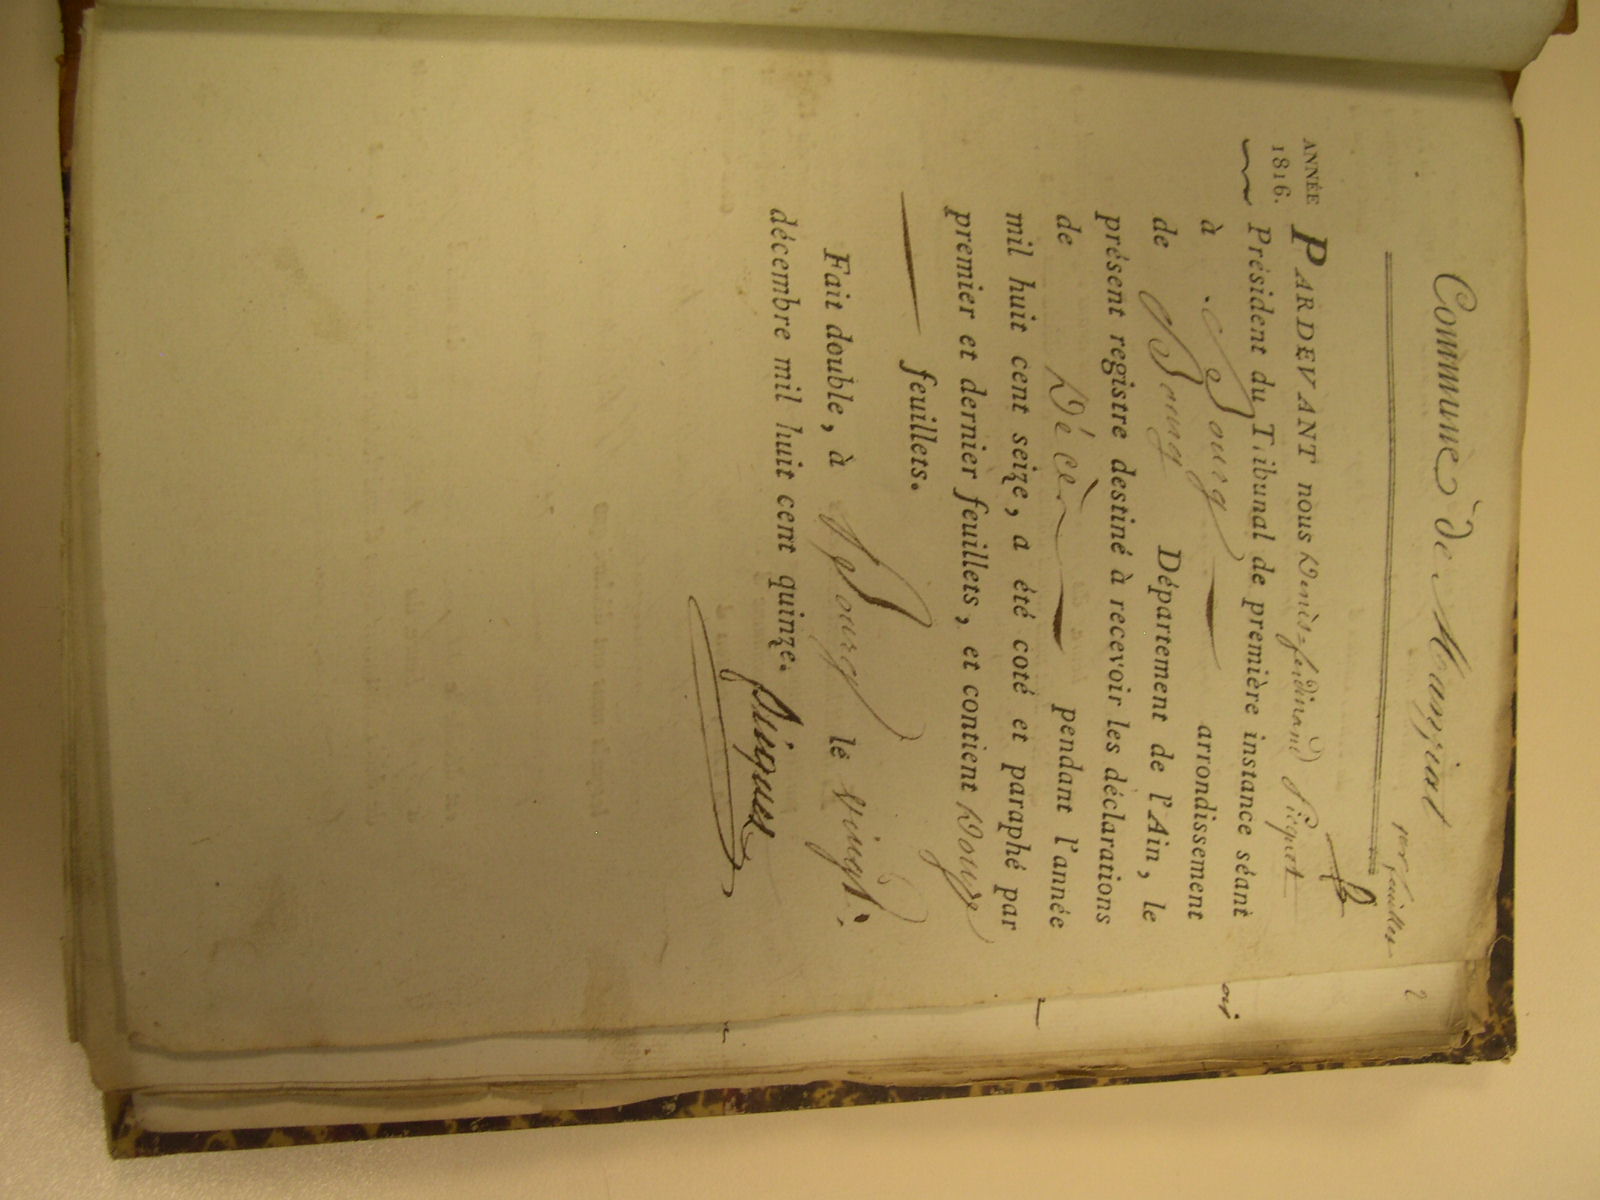 Commune de Manziat
per feuillet
2
ANNÉE
1816.
PARDEVANT nous Denis-ferdinand Picquet
Président du Tribunal de première instance séant
à Bourg arrondissement
de Bourg Département de l'Ain, le
présent registre destiné à recevoir les déclarations
de Décès pendant l'année
mil huit cent seize, a été coté et paraphé par
premier et dernier feuillets, et contient Douze
feuillets.
Fait double, à Bourg le vingt.
décembre mil huit cent quinze.
Picquet